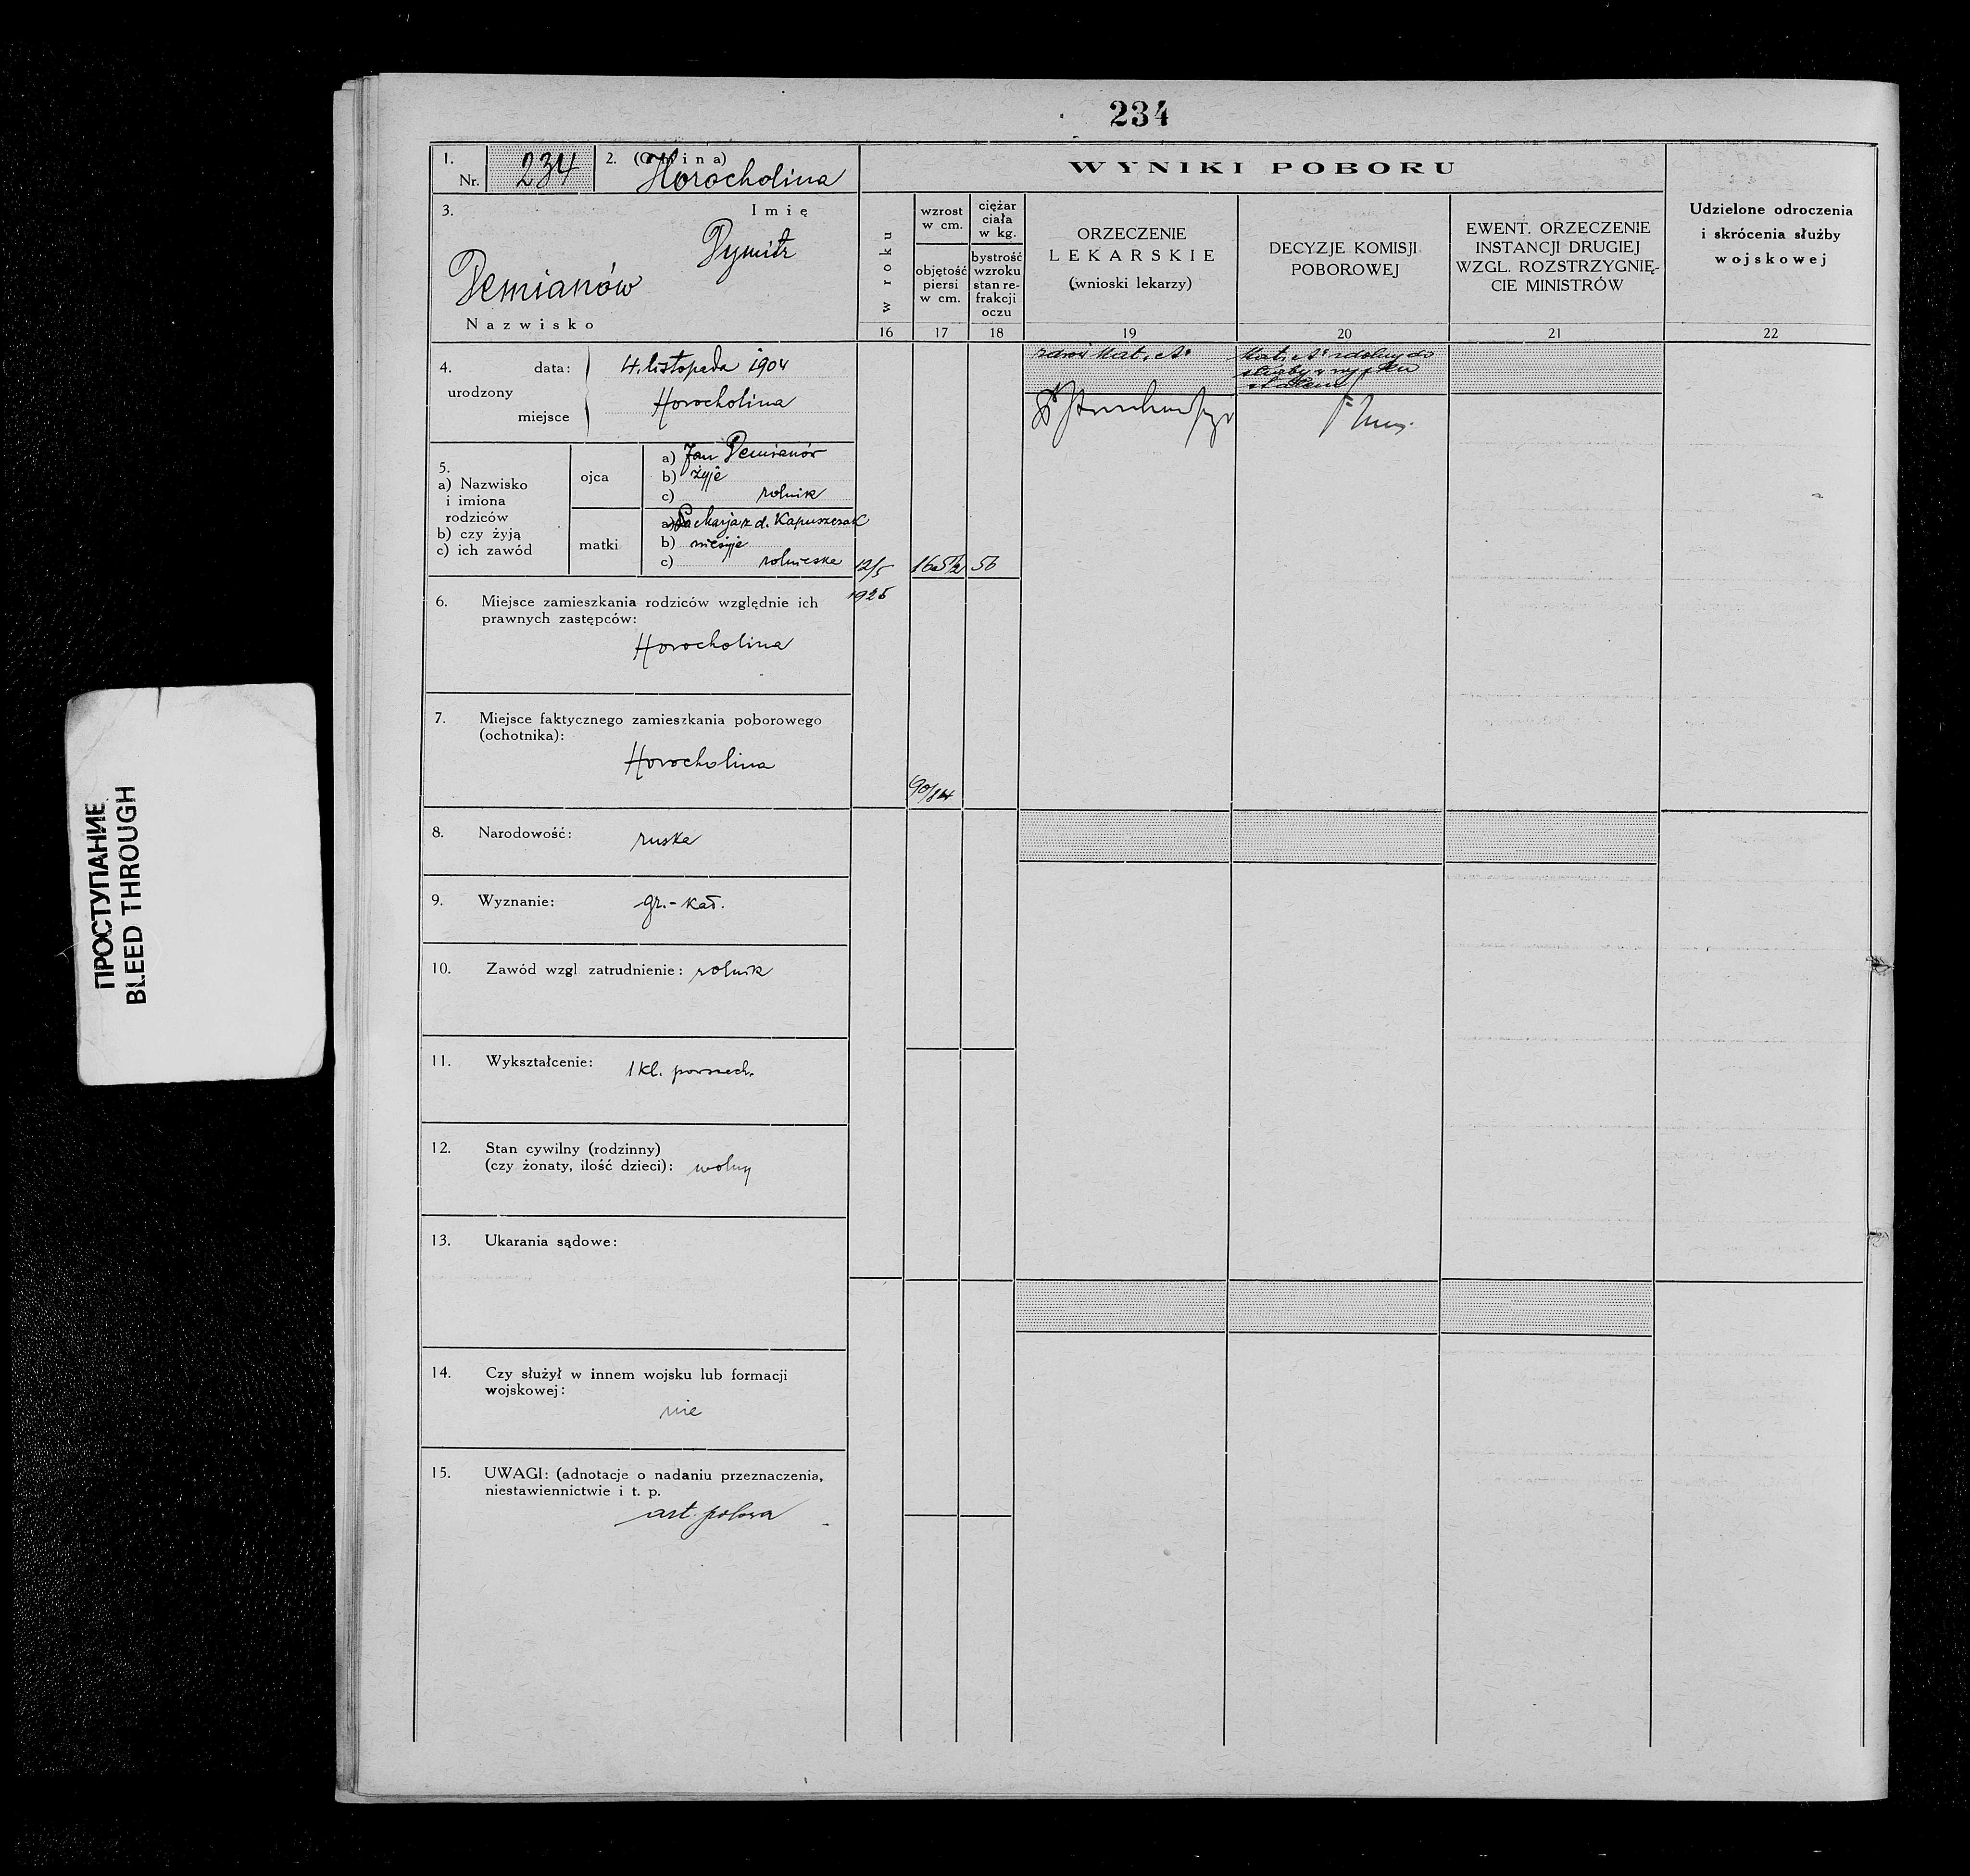 234
1.
Nr. 234
2. (Gmina)
Horocholina
3.
Imię
Dymitr
Demianów
Nazwisko
4.
urodzony
data: 4. listopada 1904
miejsce Horocholina
5.
a) Nazwisko
i imiona
rodziców
b) czy żyją
c) ich zawód
ojca
a) Jan Demianów
b) żyje
c) rolnik
matki
a) Marja z d. Kapuszczak
b) nieżyje
c)
6. Miejsce zamieszkania rodziców względnie ich
prawnych zastępców:
Horocholina
7. Miejsce faktycznego zamieszkania poborowego
(ochotnika):
Horocholina
8. Narodowość: ruska
9. Wyznanie: gr.-kat.
10. Zawód wzgl zatrudnienie: rolnik
11. Wykształcenie: 1 kl. powszech.
12. Stan cywilny (rodzinny)
(czy żonaty, ilość dzieci): wolny
13. Ukarania sądowe:
14. Czy służył w innem wojsku lub formacji
wojskowej:
nie
15. UWAGI: (adnotacje o nadaniu przeznaczenia,
niestawiennictwie i t. p.
art. polowa
WYNIKI POBORU
w roku
16
12/5
192
wzrost
w cm.
objętość
piersi
w cm.
17
165½
90/84
ciężar
ciała
w kg.
bystrość
wzroku
stan re-
frakcji
oczu
18
56
ORZECZENIE
LEKARSKIE
(wnioski lekarzy)
19
Kat. A
DECYZJE KOMISJI
POBOROWEJ
20
Kat. A zdolny do
służby w
EWENT. ORZECZENIE
INSTANCJI DRUGIEJ
WZGL. ROZSTRZYGNIĘ-
CIE MINISTRÓW
21
Udzielone odroczenia
i skrócenia służby
wojskowej
22
ПРОСТУПАНИЕ
BLEED THROUGH